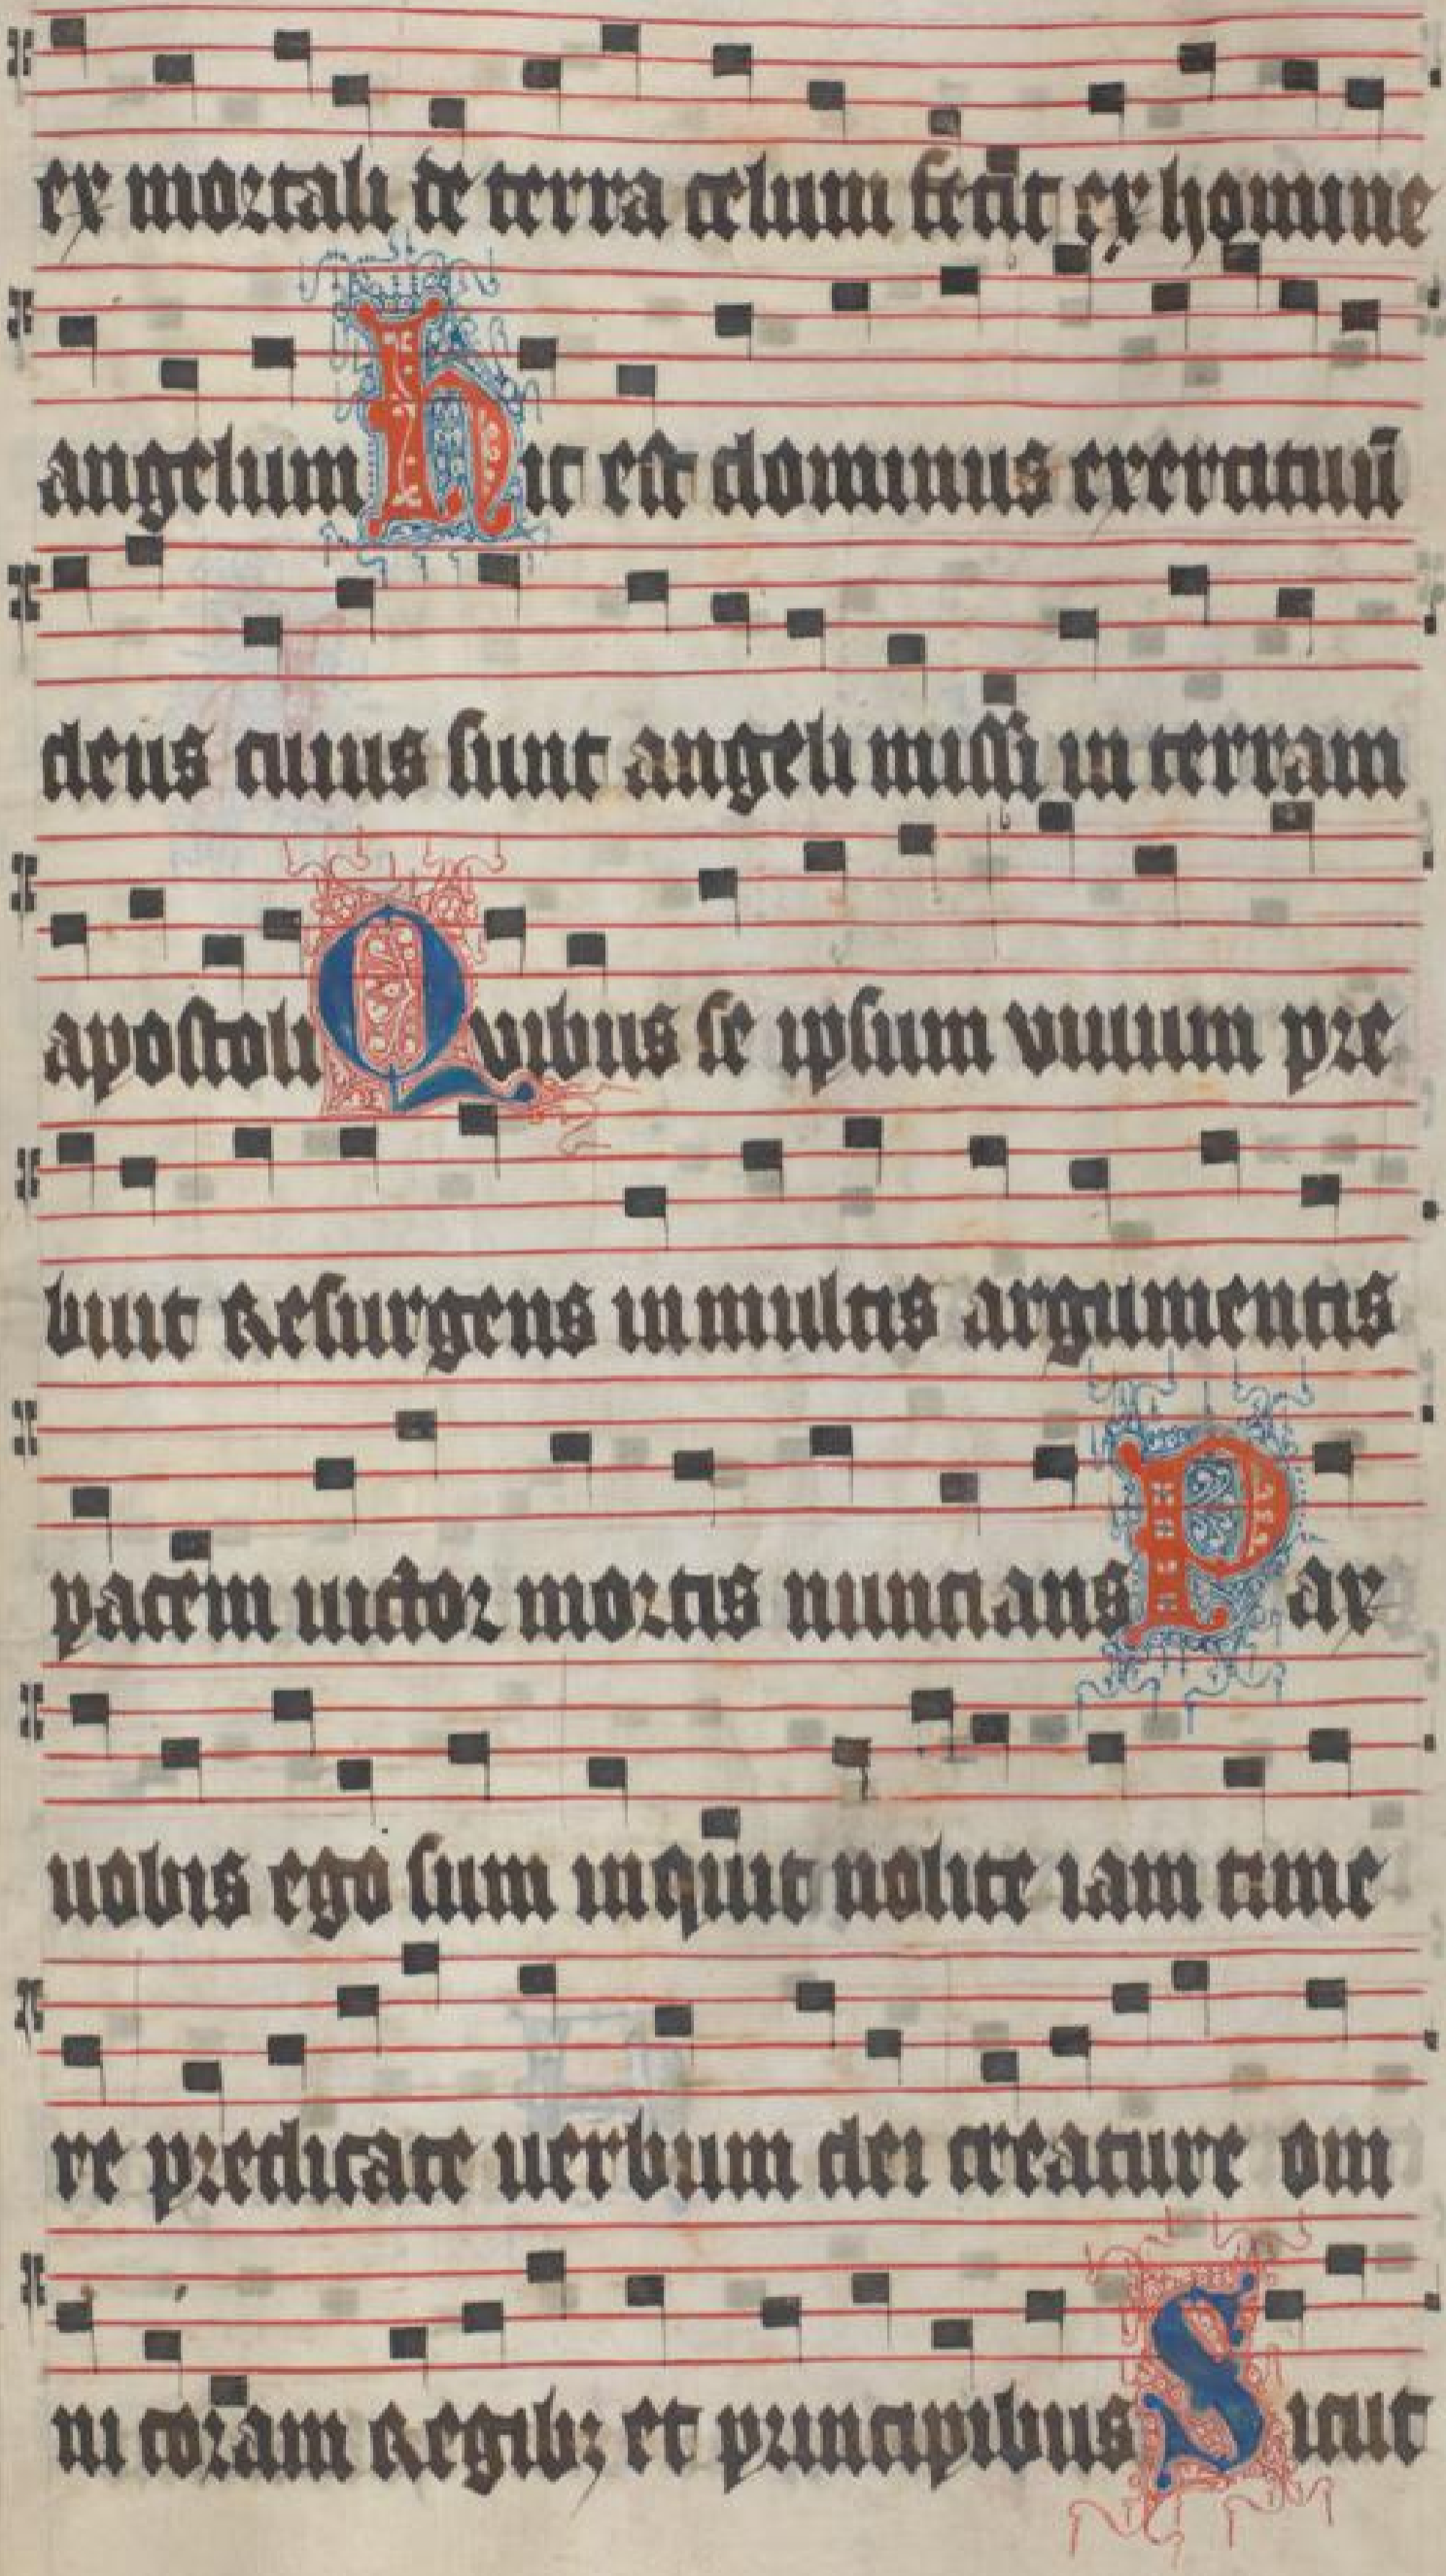 ex mortali de terra celum fecit ex homine
angelum Hic est dominus exercituū
deus cuius sunt angeli missi in terram
apostoli Quibus se ipsum viuum pre
buit Resurgens in multis argumentis
pacem uictor mortis nuncians Pax
uobis ego sum inquit nolite iam time
re predicate uerbum dei creature om
ni coram Regibꝫ et principibus Sicut